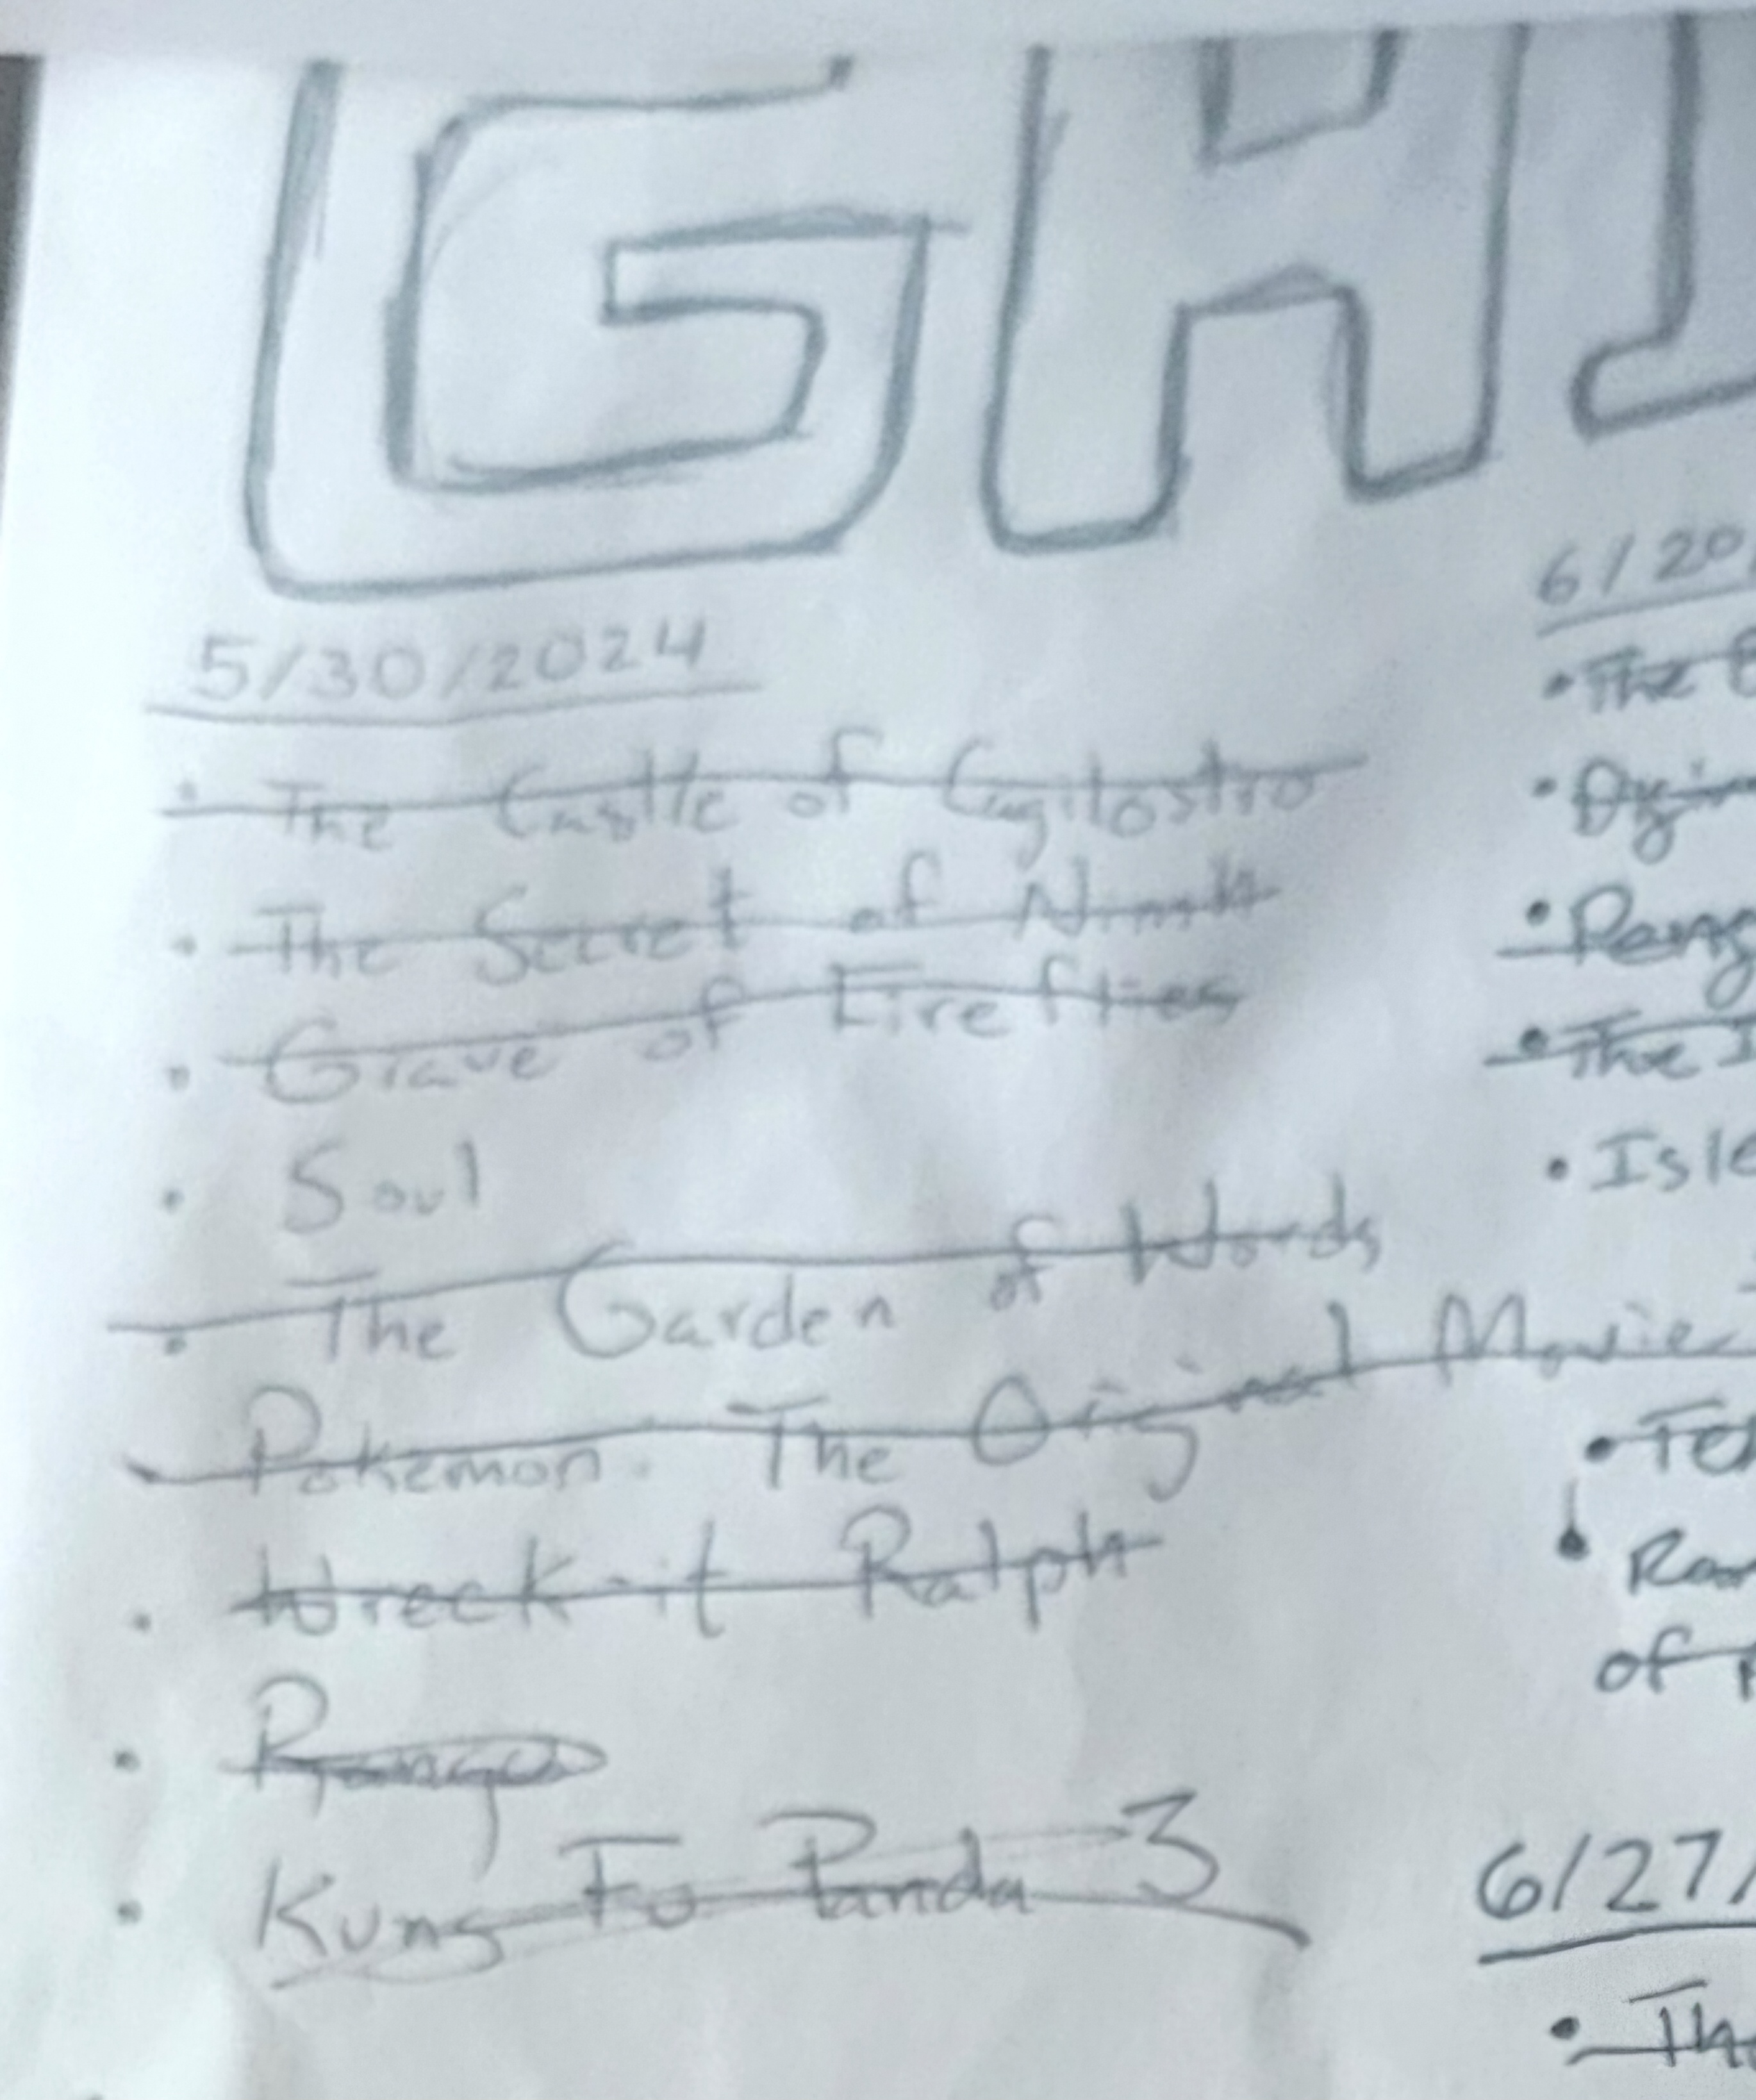 GHI
5/30/2024
• The Castle of Cagilostro
• The Secret of Nimh
• Grave of Fireflies
• Soul
• The Garden of Words
• Pokemon: The Original Movie
• Wreck-it Ralph
• Rango
• Kung Fu Panda 3
6/20/
• The
•
•
• The I
• Isle
•
•
of
6/27/
• Th